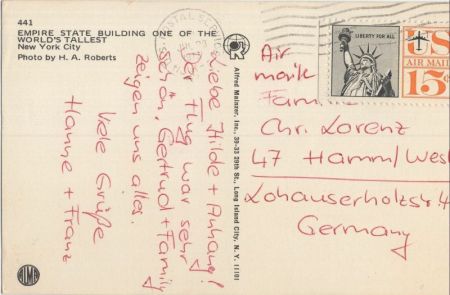 441
EMPIRE STATE BUILDING ONE OF THE
WORLD'S TALLEST
New York City
Photo by H. A. Roberts
Liebe Hilde + Anhang!
Der Flug war sehr
schön, Gertrud + Family
zeigen uns alles.
Viele Grüße
Hanne + Franz
Alfred Mainzer, Inc., 39-33 29th St., Long Island City, N. Y. 11101
POSTAL SERVICE
LIBERTY FOR ALL
US
AIR MAIL
15¢
Air
maile
Chr. Lorenz
47 Hamm/West
Lohauserholzstr 4
Germany